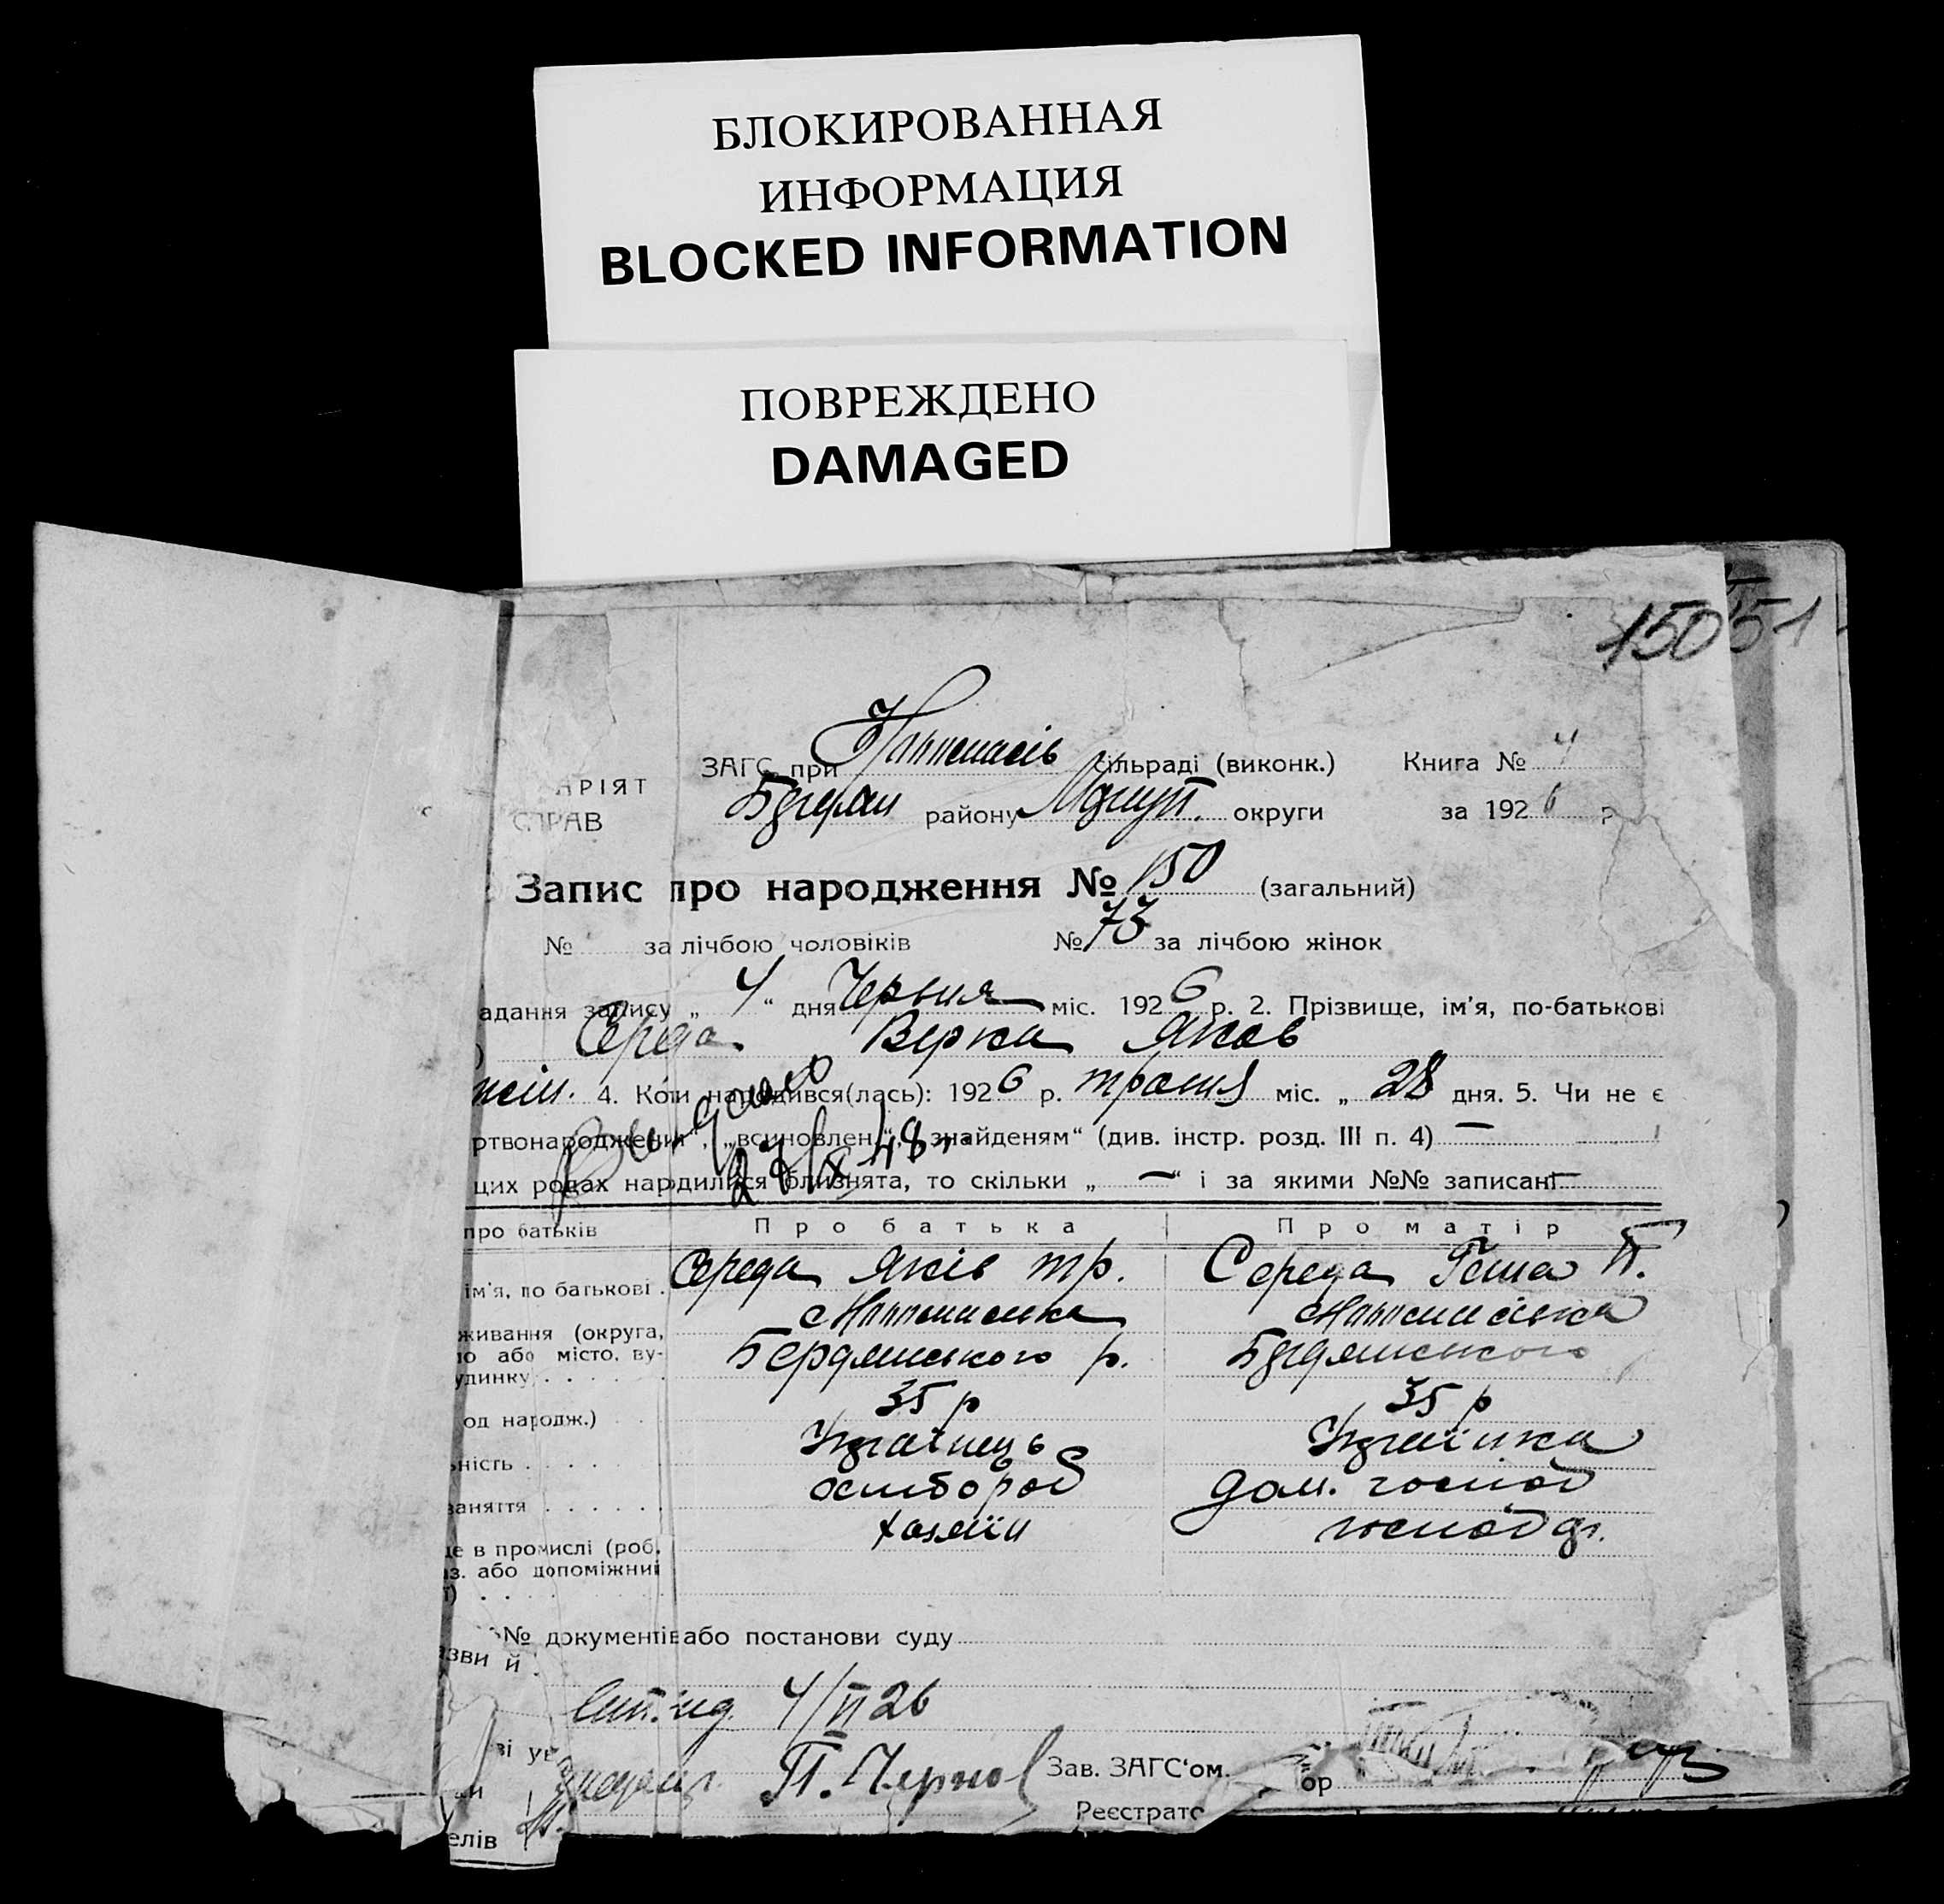 БЛОКИРОВАННАЯ
ИНФОРМАЦИЯ
BLOCKED INFORMATION
ПОВРЕЖДЕНО
DAMAGED
150 151
ЗАГС при сільраді (виконк.) Книга № 4
АРІЯТ
СПРАВ
району округи за 1926 р
Запис про народження № 150 (загальний)
№ за лічбою чоловіків № 73 за лічбою жінок
адання запису „ 4 “ дня Червня міс. 1926 р. 2. Прізвище, ім'я, по-батькові
) Середа Верка Яков
4. Коли народився(лась): 1926 р. травня міс. „ 28 дня. 5. Чи не є
ртвонародження“, „всиновлен “, знайденям“ (див. інстр. розд. III п. 4) —
цих родах народилися близнята, то скільки „ — “ і за якими №№ записані —
про батьків Про батька Про матір
ім'я, по батькові . Середа Яків тр. Середа П.
живання (округа,
ло або місто, ву-
удинку) . . . . . Бердянського р. Бердянського
од народж.) . . 35 р 35 р
ьність . . . . . Українець Українка
заняття . . . . . хлібороб дом. господ
це в промислі (роб.
аз. або допоміжний
т) . . . . хазяїн господ
№ документів або постанови суду
азви й
4/VI 26
ві ув
П. Чернов Зав. ЗАГС'ом.
Реєстрато ор
елів